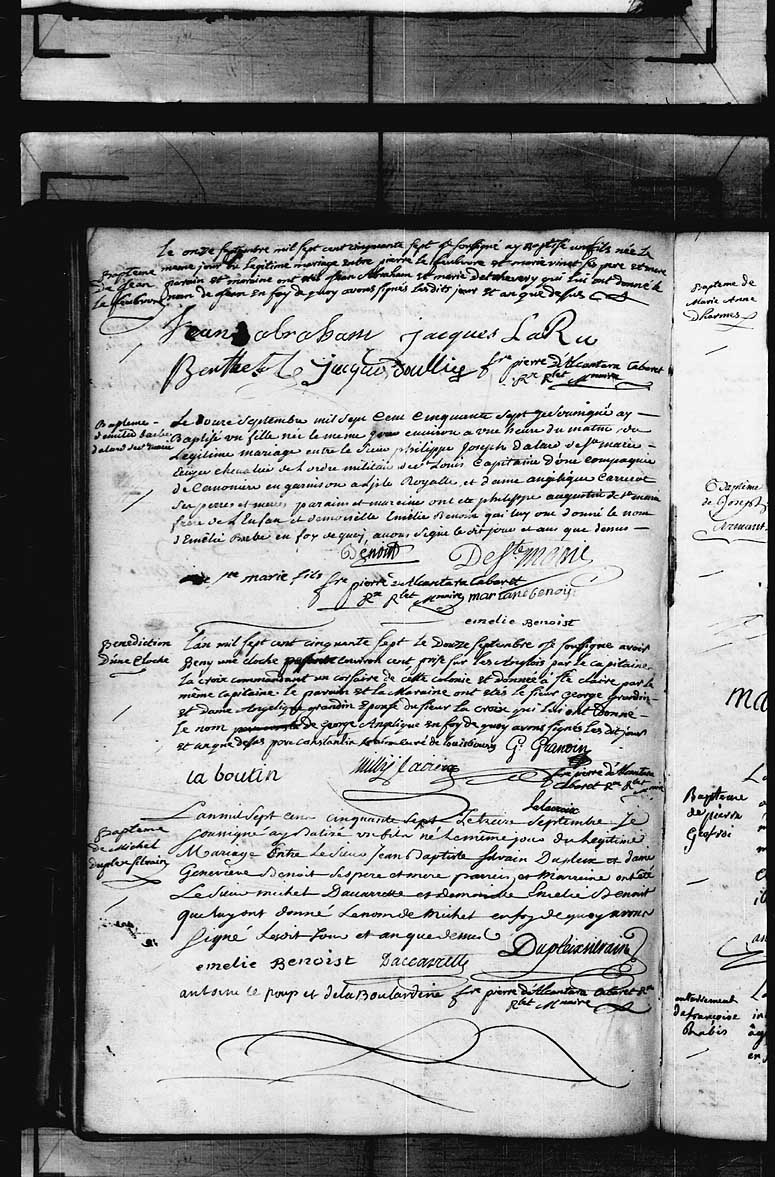 Le onze Septembre mil sept cent cinquante sept je soussigné ay Baptisé un fils née Le
meme jour du Legitime mariage entre pierre Le feubvre et marie ses pere et mere
parain et maraine ont étés Jean Abraham et marie qui lui ont donné le
nom de Jean En foy de quoy avons signés lesdits jour et an que de sus
Bapteme
de Jean
Le feubvre
Jean abraham Jacques LaRu
Berthelot Jacques Soullier fre pierre D'Alcantara Cabaret
Rn Rlet Mnaire
Bapteme
d'emilie barbe
Le Douze Septembre mil sept Cent Cinquante Sept je Sousigné ay
Baptisé vn fille née le meme jour environ a vne heure du matin du
Legitime mariage entre le Sieur philippe Joseph d'alard de Ste marie
Ecuyer chevalier de Lordre militaire de St Louis Capitaine d'une compagnie
de Canoniers en garnison a Lisle Royalle, et dame angelique Carrerot
ses peres et meres parain et mareine ont ete philippe augustin de Ste marie
frere de l'Enfan et demoiselle Emelie Benoist qui luy ont donné le nom
d'Emelie Barbe en foy de quoy, avons signé le dit jour et ans que desus
Benoist DeSte marie
de Ste marie fils fre pierre d'Alcantara Cabaret
Rn Rlet Mnaire martant benoist
emelie Benoist
Benediction
D'une Cloche
L'an mil sept cent cinquante sept Le Douze Septembre je soussigne avoir
Beny une cloche pesante environ cent prise sur les Anglois par le capitaine
La croix commandant un corsaire de cette colonie et donnée a Ste claire par le
même capitaine Le parain et La Maraine ont etés le sieur george Grandin
et Dame Angelique grandin Epouse du sieur La croix qui lui ont donné
Le nom de george Angelique En foy de quoy avons signés Les dit jours
et an que desus pour constantin de louisbourg G: Grandin
la boutin fre pierre d'Alcantara
Cabaret Rn Rlet Mnaire
Lalacroix
Bapteme
de Michel
duplex Silvain
L'an mil Sept cens cinquante Sept Le treize Septembre Je
Sousigné ay Batizé un né Le même jour du legitime
Mariage Entre Le Sieur Jean Baptiste Silvain Duplex et dame
Genevieve Benoit Ses pere et mere parain, et Mareine ont été
Le Sieur Michel Daccarrette et demoiselle Emelie Benoit
qui luy ont donné Le nom de Michel en foy de quoy avons
Signé Lesdit Jour et an que dessus Duplaixsilvain
emelie Benoist Daccarrette
antoine le poup et de la Boulardrie fre pierre d'Alcantara Cabaret Rn
Rlet Mnaire
Bapteme de
Marie Anne
Dharmes
Bapteme
de Joseph
Armant
ma
Bapteme
de pierre
Geofroi
enterrement
de françoise
Rabis